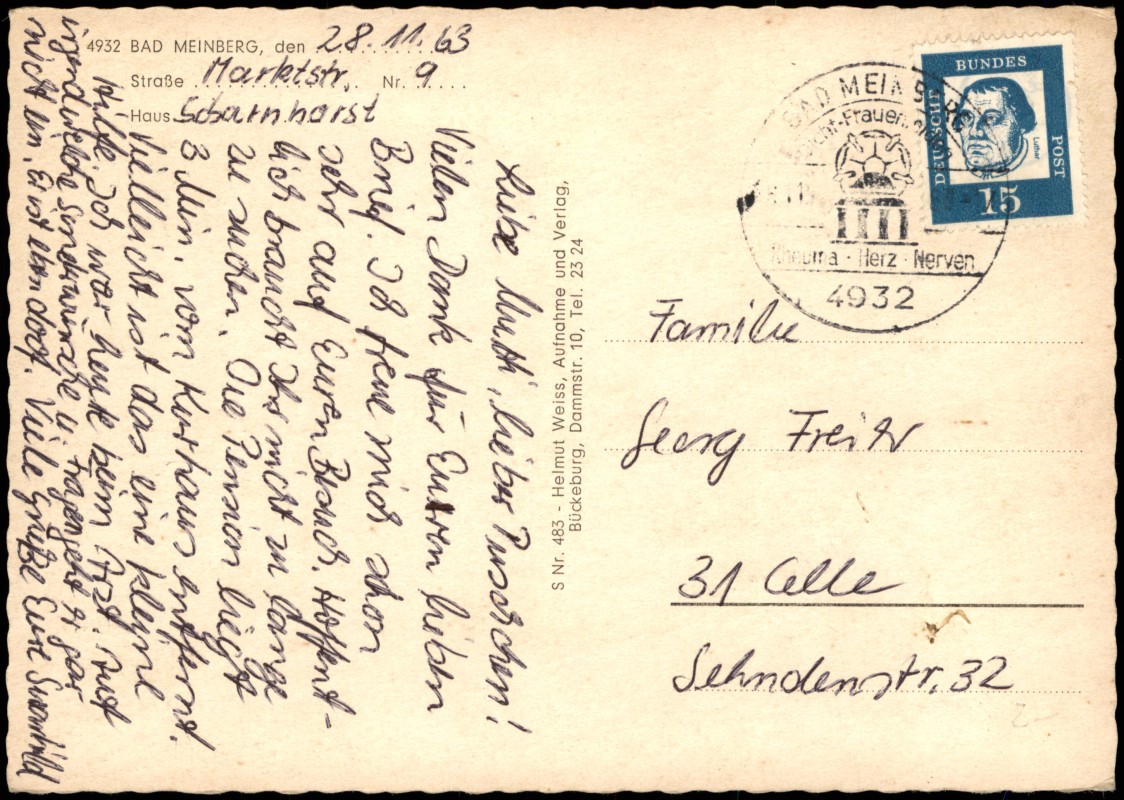 4932 BAD MEINBERG, den 28.11.63
Straße Marktstr. Nr. 9
Haus Scharnhorst
Liebe Mutti, lieber Puschchen!
Vielen Dank für Euren lieben
Brief. Ich freue mich schon
sehr auf Euren Besuch. Hoffent-
lich braucht Ihr nicht zu lange
zu suchen. Die Pension liegt
3 Min. vom Kurhaus entfernt.
Vielleicht ist das eine kleine
Hilfe. Ich war heute beim Arzt. Auf
irgendwelche Sonderwünsche u. Fragen geht er gar
nicht ein. Er ist eben doof. Viele Grüße Eure
S Nr. 483 - Helmut Weiss, Aufnahme und Verlag,
Bückeburg, Dammstr. 10, Tel. 23 24
DEUSCHE BUNDES POST
Luther
15
BAD MEINBERG
Rheuma · Herz · Nerven
4932
Familie
Georg Freitr
31 Celle
Sehndenstr. 32